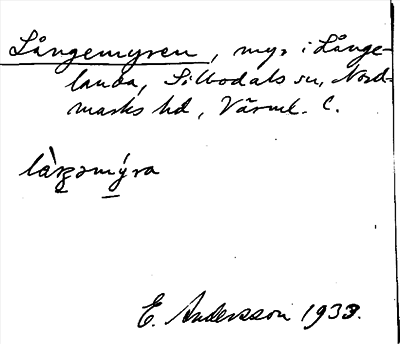 Långemyren, myr i Långe-
landa, Silbodals sn, Nord-
marks hd, Värml. C.
E. Andersson 1933.